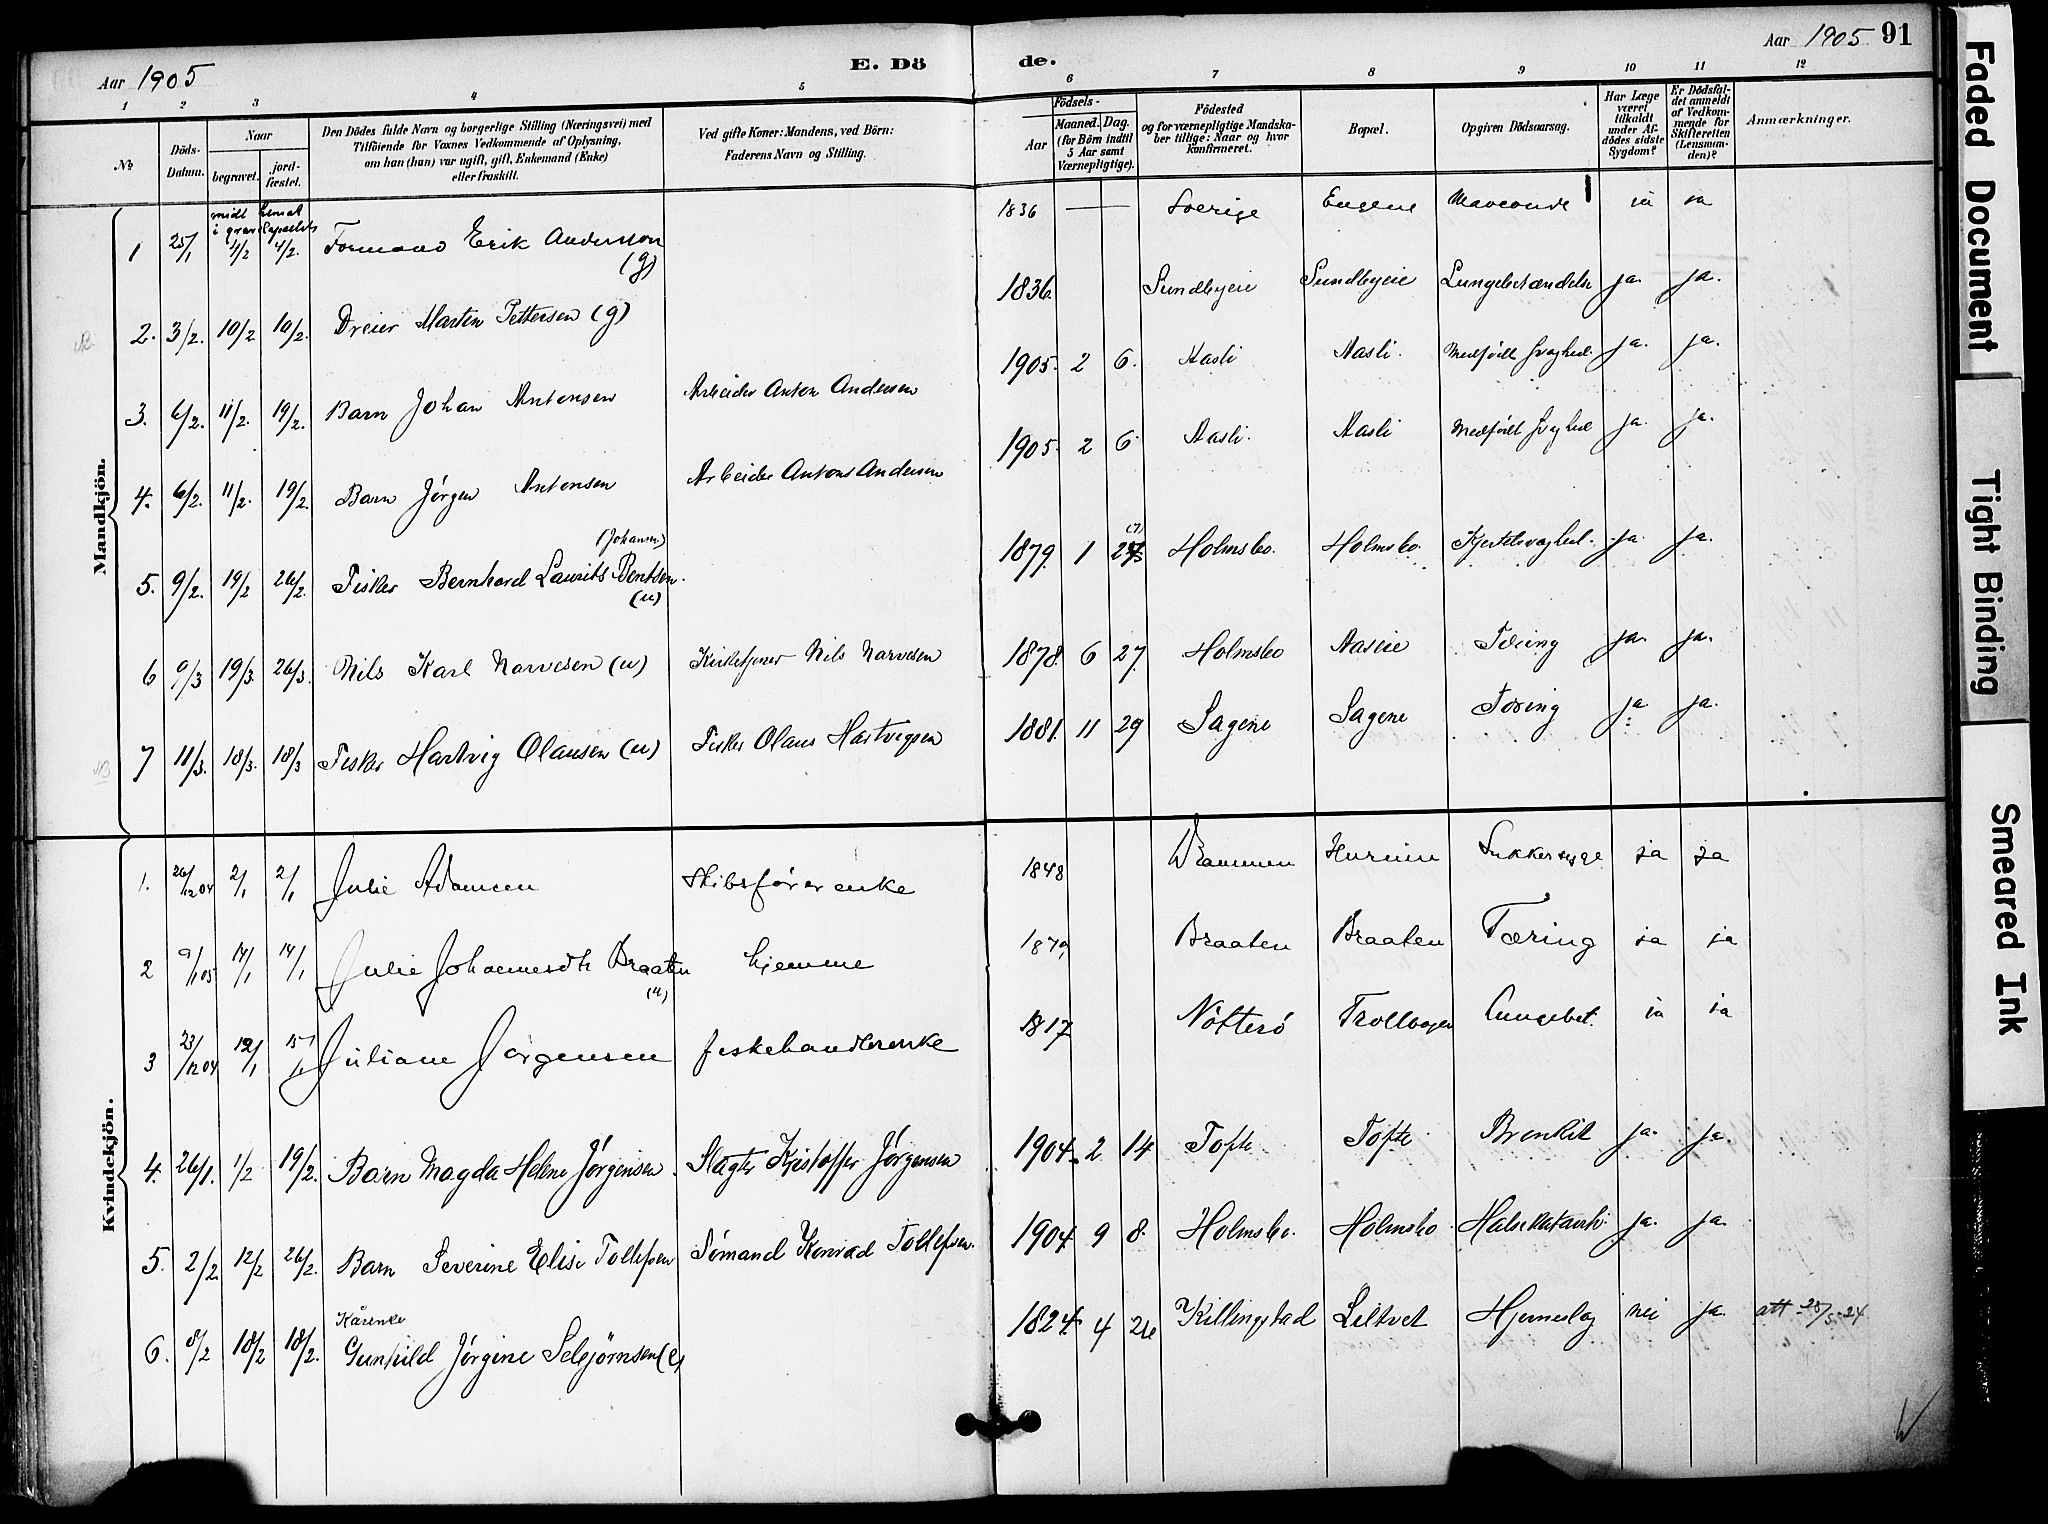 Aar 1905
E. Dö
de.
Aar 1905 91
1 2 3 4 5 6 7 8 9 10 11 12
No
Döds-Datum.
Naar
begravet. jord-fæstet.
Den Dödes fulde Navn og borgerlige Stilling (Næringsvei) med
Tilföiende for Voxnes Vedkommende af Oplysning,
om han (hun) var ugift, gift, Enkemand (Enke)
eller fraskilt.
Ved gifte Koner: Mandens, ved Börn:
Faderens Navn og Stilling.
Födsels-
Aar Maaned. Dag.
(for Börn indtil
5 Aar samt
Værnepligtige).
Födested
og for værnepligtige Mandska-
ber tillige: Naar og hvor
konfirmeret.
Bopæl.
Opgiven Dödsaarsag.
Har Læge
været
tilkaldt
under Af-
dödes sidste
Sygdom?
Er Dödsfal-
det anmeldt
af Vedkom-
mende for
Skifteretten
(Lensman-
den)?
Anmærkninger.
Mandkjön.
1 25/1 4/2 4/2. Formand Erik Andersson (g) 1836 — Sverige Engene ja ja
2. 3/2. 10/2 10/2. Dreier Martin Pettersen (g) 1836. Sundbyeie Sundbyeie Lungebetændelse ja. ja.
3. 6/2. 11/2. 19/2. Barn Johan Antonsen Arbeider Anton Andersen 1905. 2 6. Aasli Aasli. Medfödt svaghed. ja. ja.
4. 6/2. 11/2. 19/2. Barn Jörgen Antonsen Arbeider Anton Andersen 1905. 2 6. Aasli. Aasli Medfödt svaghed ja. ja.
(Johansen)
5. 9/2. 19/2 26/2. Fisker Bernhard Laurits Bentsen. (u) 1879. 1 Holmsbo. Holmsbo. Kjertelsvaghed. ja. ja.
6 9/3 19/3. 26/3. Nils Karl Narvesen (u) Kirketjener Nils Narvesen 1878. 6 27. Holmsbo Aaseie Tæring ja. ja.
7 11/3. 18/3. 18/3 Fisker Hartvig Olausen (u) Fisker Olaus Hartvigsen 1881. 11 29 Sagene Sagene Tæring ja. ja.
Kvindekjön.
1. 26/12 04 2/1 2/1 Julie Adamsen Skibsförerenke 1848 Drammen Hurum Sukkersyge ja ja
2 9/1 05 14/1 14/1 Julie Johannesdtr Braaten (u) hjemme 1879, Braaten Braaten Tæring ja ja
3 23/12 04 12/1 15/1 Juliane Jörgensen fiskehandlerenke 1817 Nötterö Trollvogen Lungebet. ja ja
4. 26/1. 1/2 19/2. Barn Magda Helene Jörgensen. Slagter Kristoffer Jörgensen 1904. 2 14 Tofte Tofte Bronkit ja. ja.
5. 2/2 12/2 26/2. Barn Severine Elise Tollefsen Sömand Konrad Tollefsen. 1904. 9 8. Holmsbo. Holmsbo Halskatarrh. ja. ja.
Kårenke
6. 8/2 18/2 18/2. Gunhild Jörgine Sebjörnsen (e) 1824. 4 26 Killingstad Liltvet Hjerneslag nei ja. att 25/5-24
Faded Document
Tight Binding
Smeared Ink